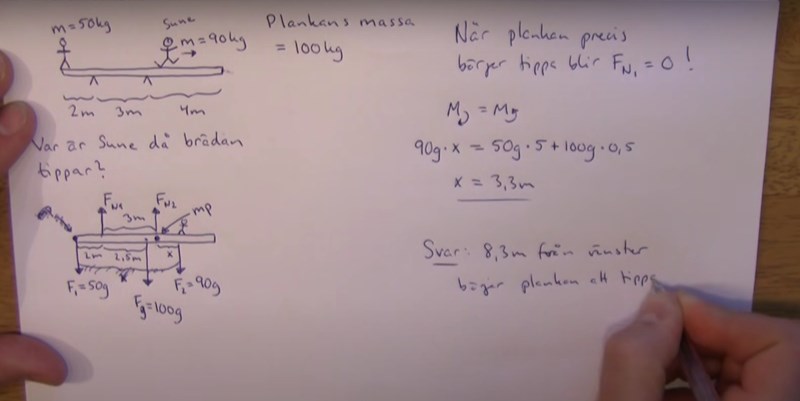 m=50kg
Sune
m=90kg
2m 3m 4m
Plankans massa
= 100kg
Var är Sune då brädan
tippar?
FN1 FN2
3m
mp
2m 2,5m x
F₁=50g
F₂=90g
Fg=100g
När plankan precis
börjar tippa blir FN₁ = 0 !
M = M
90g·x = 50g·5 + 100g·0,5
x = 3,3m
Svar: 8,3m från vänster
börjar plankan att tippa